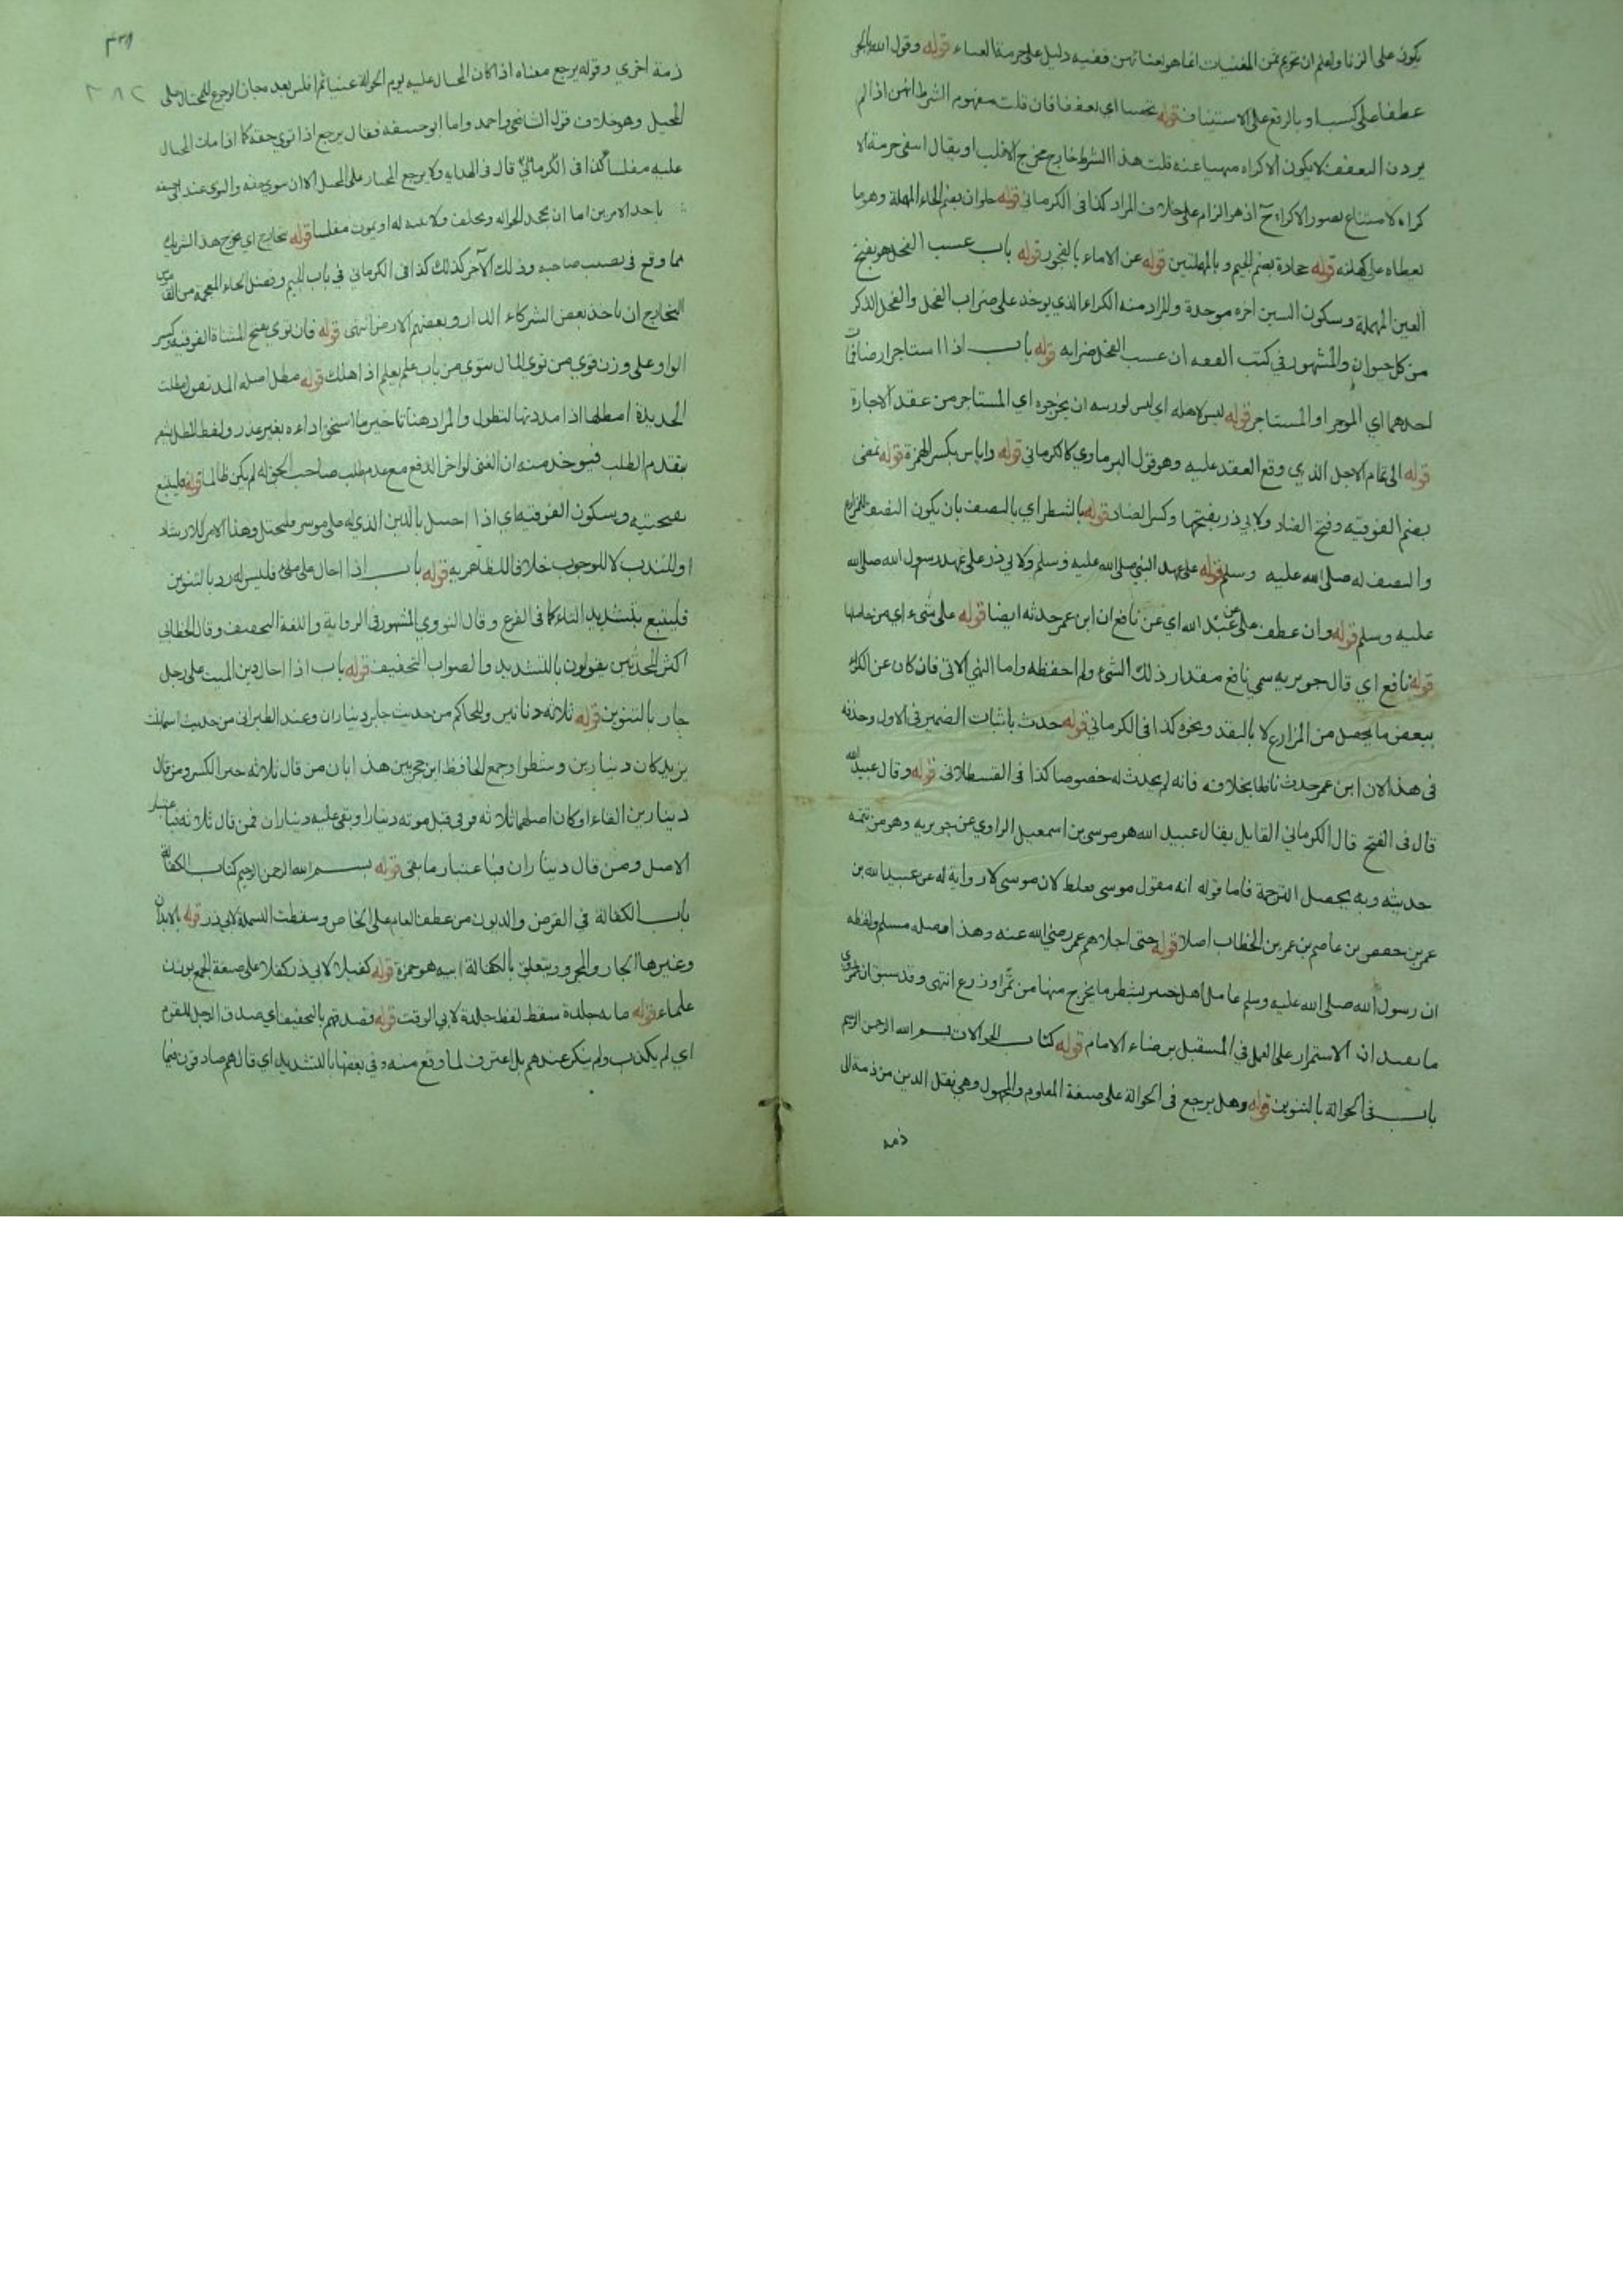 يكون على الزنا وليعلم ان تحريم ثمن المغنيات انما هو لغنائهن ففيه دليل على حرمة الغناء قوله وقول الله بالجر
عطفا على كسب او بالرفع على الاستيناف قوله تحصنا اي تعففا فان قلت مفهوم الشرط انهن اذا لم
يردن التعفف لا يكون الاكراه منهيا عنه قلت هذا الشرط خارج مخرج الاغلب او يقال انتفى حرمة الا
كراه لامتناع تصور الاكراه ح اذ هو الزام على خلاف المراد كذا في الكرماني قوله حلوان بضم الحاء المهملة وهو ما
يعطاه على كهانته قوله جحادة بضم الجيم وبالمهملتين قوله عن الاماء بالفجور قوله باب عسب الفحل هو بفتح
العين المهملة وسكون السين اخره موحدة والمراد منه الكراء الذي يوخذ على ضراب الفحل والفحل الذكر
من كل حيوان والمشهور في كتب الفقه ان عسب الفحل ضرابه قوله باب اذا استاجر ارضا فمات
احدهما اي الموجر او المستاجر قوله ليس لاهله اي ليس لورثته ان يخرجوه اي المستاجر من عقد الاجارة
قوله الى تمام الاجل الذي وقع العقد عليه وهو قول البرماوي كالكرماني قوله واياس بكسر الهمزة قوله تمضى
بضم الفوقيه وفتح الضاد ولابي ذر بفتحها وكسر الضاد قوله بالشطر اي بالنصف بان يكون النصف للزارع
والنصف له صلى الله عليه وسلم قوله على عهد النبي صلى الله عليه وسلم ولابي ذر على عهد رسول الله صلى الله
عليه وسلم قوله وان عطف على عن عبد الله اي عن نافع ان ابن عمر حدثه ايضا قوله على شيء اي من حاصلها
قوله نافع اي قال جويريه سمى نافع مقدار ذلك الشيء ولم احفظه واما النهي الاتي فان كان عن الكراء
ببعض ما يحصل من المزارع لا بالنقد ونحوه كذا في الكرماني قوله حدث باثبات الضمير في الاول وحذفه
في هذا لان ابن عمر حدث نافعا بخلافه فانه لم يحدث له خصوصا كذا في القسطلاني قوله وقال عبيد الله
قال في الفتح قال الكرماني القايل يقال عبيد الله هو موسى بن اسمعيل الراوي عن جويريه وهو من تتمه
حديثه وبه يحصل الترجمة فاما قوله انه مقول موسى فغلط لان موسى لا رواية له عن عبيد الله بن
عمر بن حفص بن عاصم بن عمر بن الخطاب اصلا قوله حتى اجلاهم عمر رضي الله عنه وهذا وصله مسلم ولفظه
ان رسول الله صلى الله عليه وسلم عامل اهل خيبر بشطر ما يخرج منها من ثمر او زرع انتهى وقد سبق ان
ما يفيد ان الاستمرار على العمل في المستقبل برضاء الامام قوله كتاب الحوالات بسم الله الرحمن الرحيم
باب في الحوالة بالتنوين قوله وهل يرجع في الحوالة على صيغة المعلوم والمجهول وهي نقل الدين من ذمة الى
ذمة
٣٣٨
٣٨٢
ذمة اخري وقوله يرجع معناه اذا كان المحال عليه يوم الحوالة غنيا ثم افلس بعد جاز الرجوع للمحتال على
المحيل وهو خلاف قول الشافعي واحمد واما ابو حنيفه فقال يرجع اذا توي حقه كما اذا مات المحال
عليه مفلسا كذا في الكرماني قال في الهدايه ولا يرجع المحتار على المحيل الا ان يتوى حقه والتوى عند ابي حنيفه
باحد الامرين اما ان يجحد الحواله ويحلف ولا بينه له او يموت مفلسا قوله يتخارج اي يخرج هذا الشريك
مما وقع في نصيب صاحبه وذلك الآخر كذلك كذا في الكرماني في باب الجيم وفصل الحاء المعجمة من القاموس
التخارج ان ياخذ بعض الشركاء الدار وبعضهم الارض انتهى قوله فان توي بفتح المثناة الفوقيه وكسر
الواو على وزن قوي من توي المال يتوى من باب علم يعلم اذا هلك قوله مطل اصله المد تقول مطلت
الحديدة امطلها اذا مددتها لتطول والمراد هنا تاخير ما استحق اداءه بغير عذر ولفظ المطل يشعر
بتقدم الطلب فيوخذ منه ان الغني لو اخر الدفع مع عدم طلب صاحب الحق له لم يكن ظالما قوله فليتبع
بتحتيه وسكون الفوقيه اي اذا احيل بالدين الذي له على موسر فليحتل وهذا الامر للارشاد
او للندب لا للوجوب خلافا للظاهريه قوله باب اذا احال على ملي فليس له رد بالتنوين
فليتبع بتشديد التاء كما في الفرع وقال النووي المشهور في الرواية واللغة التخفيف وقال الخطابي
اكثر المحدثين يقولون بالتشديد والصواب التخفيف قوله باب اذا احال دين الميت على رجل
جاز بالتنوين قوله ثلاثة دنانير وللحاكم من حديث جابر ديناران وعند الطبراني من حديث اسماء بنت
يزيد كان دينارين وشطرا وجمع الحافظ ابن حجر بين هذا بان من قال ثلاثه جبر الكسر ومن قال
دينارين الغاه او كان اصلهما ثلاثه فوفى قبل موته دينارا وبقى عليه ديناران فمن قال ثلاثه فباعتبار
الاصل ومن قال ديناران فباعتبار ما بقى قوله بسم الله الرحمن الرحيم كتاب الكفالة
باب الكفالة في القرض والديون من عطف العام على الخاص وسقطت البسملة لابي ذر قوله بالابدان
وغيرها الجار والمجرور يتعلق بالكفالة ابيه هو حمزة قوله كفيلا لابي ذر كفلا على صيغة الجمع بوزن
علماء قوله مايه جلدة سقط لفظ جلدة لابي الوقت قوله فصدقهم بالتخفيف اي صدق الرجل للقوم
اي لم يكذب ولم ينكر عندهم بل اعترف لما وقع منه وفي بعضها بالتشديد اي قال هم صادقون فيما